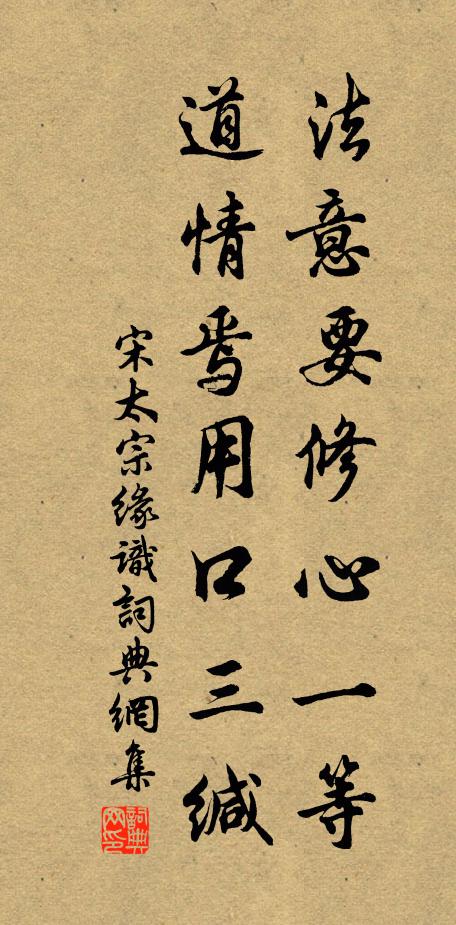 法意要修心一等
道情焉用口三缄
宋太宗缘識詞典網集
詞典网印